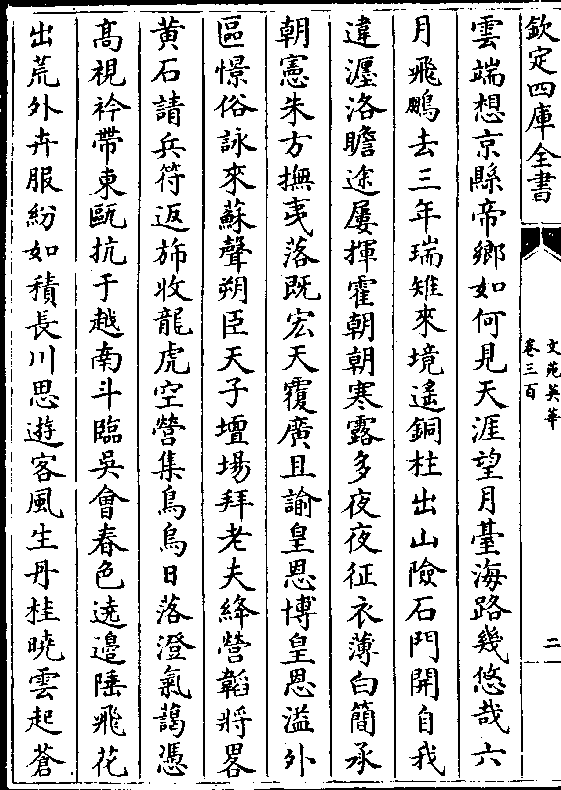 欽定四庫全書
文苑英華
卷三百
二
雲端想京縣帝鄉如何見天涯望月臺海路幾悠哉六
月飛鵬去三年瑞雉來境遥銅柱出山險石門開自我
違瀍洛瞻途屢揮霍朝朝寒露多夜夜征衣薄白簡承
朝憲朱方撫夷落既宏天覆廣且諭皇恩博皇恩溢外
區憬俗詠來蘇聲朔臣天子壇場拜老夫絳營韜將畧
黄石請兵符返斾收龍虎空營集鳥烏日落澄氣藹憑
髙視衿帶東甌抗于越南斗臨吳會春色遶邉陲飛花
出荒外卉服紛如積長川思遊客風生丹桂曉雲起蒼